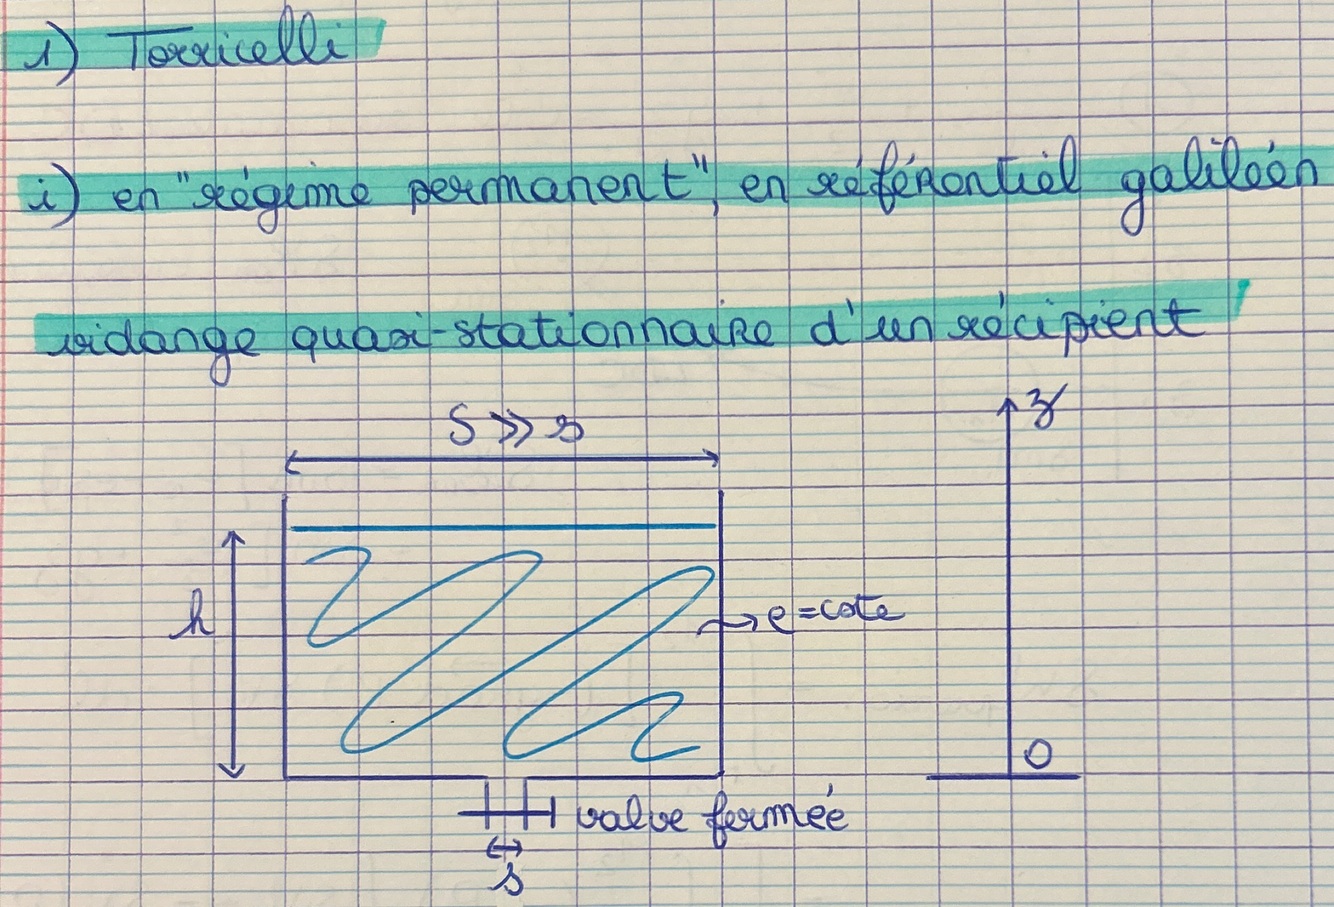 1) Torricelli
i) en "régime permanent", en référentiel galiléen
vidange quasi-stationnaire d'un récipient
S >> s
z
h
e = cste
O
valve fermée
s